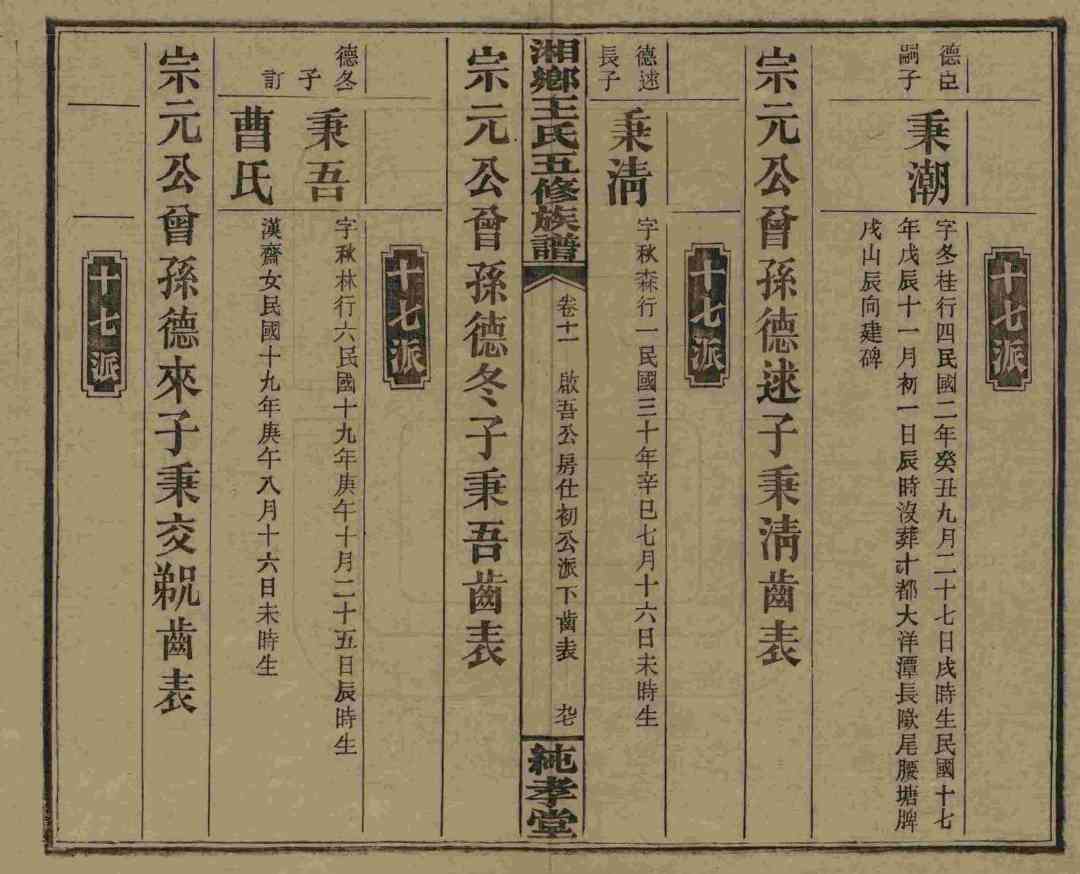 十七派
德臣
嗣子
秉潮
字冬桂行四民國二年癸丑九月二十七日戌時生民國十七
年戊辰十一月初一日辰時沒葬十都大洋潭長歐尾腰塘牌
戌山辰向建碑
宗元公曾孫德逑子秉淸齒表
十七派
德逑
長子
秉淸
字秋森行一民國三十年辛巳七月十六日未時生
湘鄉王氏五修族譜
卷十一
啟吾公房仕初公派下齒表
純孝堂
宗元公曾孫德冬子秉吾齒表
十七派
德冬
子
秉吾
字秋林行六民國十九年庚午十月二十五日辰時生
訂
曹氏
漢齋女民國十九年庚午八月十六日未時生
宗元公曾孫德來子秉交齒表
十七派